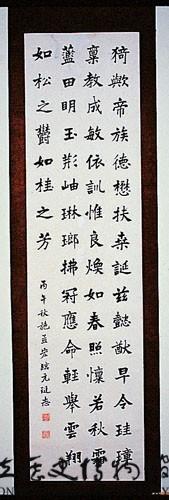 猗歟帝族德懋扶桑誕茲懿猷早令珪璋
稟教成敏依訓惟良煥如春照懍若秋霜
藍田明玉荊岫琳瑯拂冠應命輕舉雲翔
如松之鬱如桂之芳
丙午秋施孟宏臨元珽志